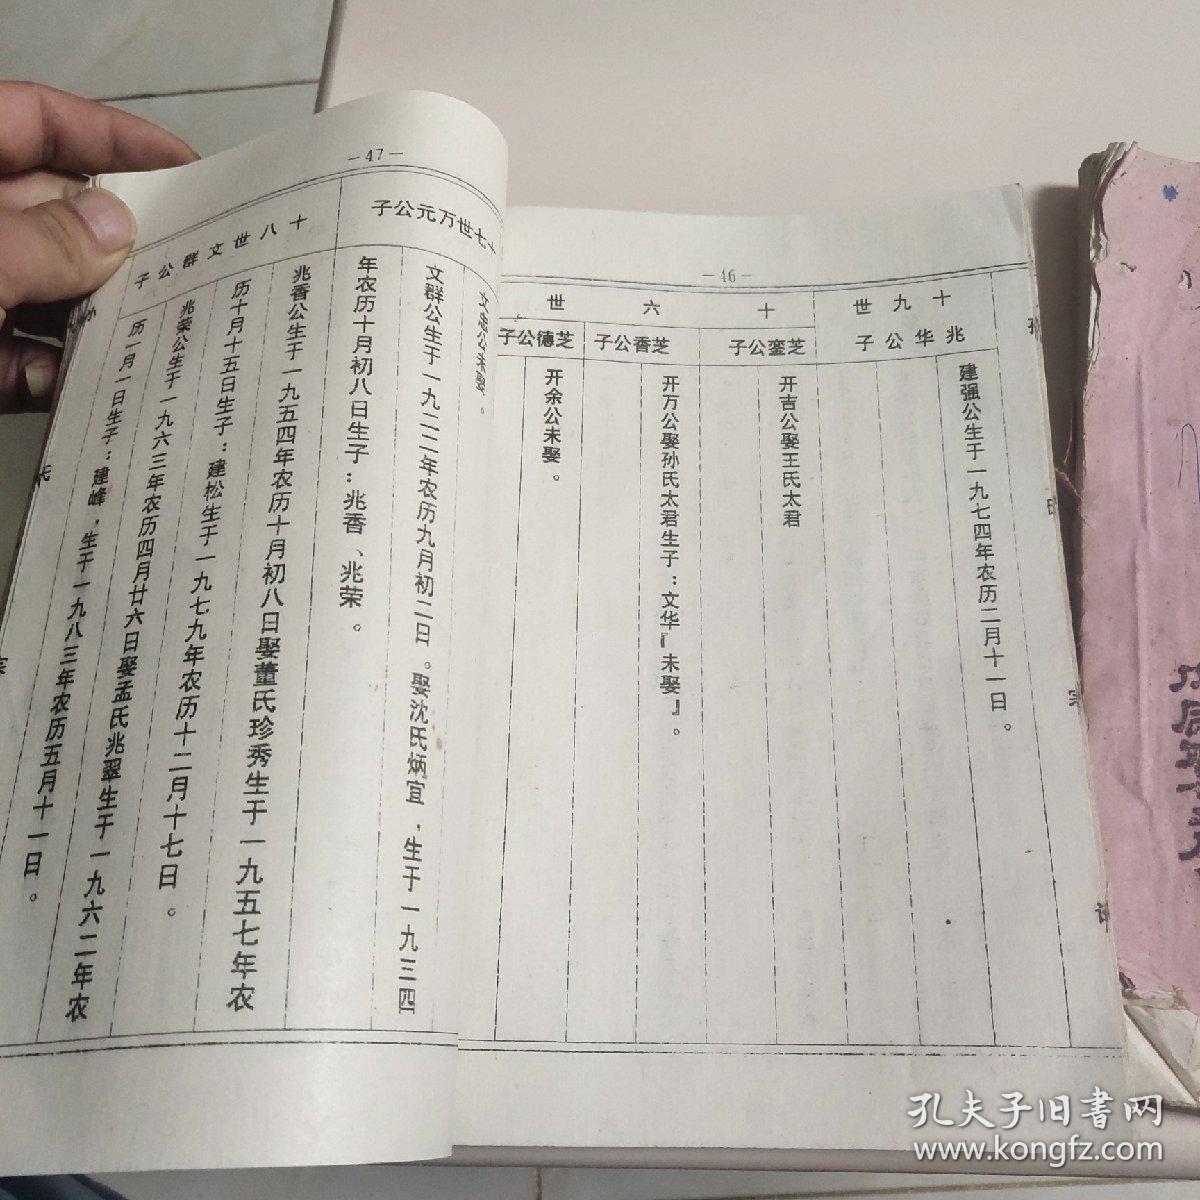 —46—
十九世
兆华公子
建强公生于一九七四年农历二月十一日。
十六世
芝銮公子
开吉公娶王氏太君
芝香公子
开万公娶孙氏太君生子：文华『未娶』。
芝德公子
开余公未娶。
—47—
十七世万元公子
文忠公未娶。
文群公生于一九二二年农历九月初二日。娶沈氏炳宜，生于一九三四
年农历十月初八日生子：兆香、兆荣。
十八世文群公子
兆香公生于一九五四年农历十月初八日娶董氏珍秀生于一九五七年农
历十月十五日生子：建松生于一九七九年农历十二月十七日。
兆荣公生于一九六三年农历四月廿六日娶孟氏兆翠生于一九六二年农
历一月一日生子：建峰，生于一九八三年农历五月十一日。
孔夫子旧书网
www.kongfz.com